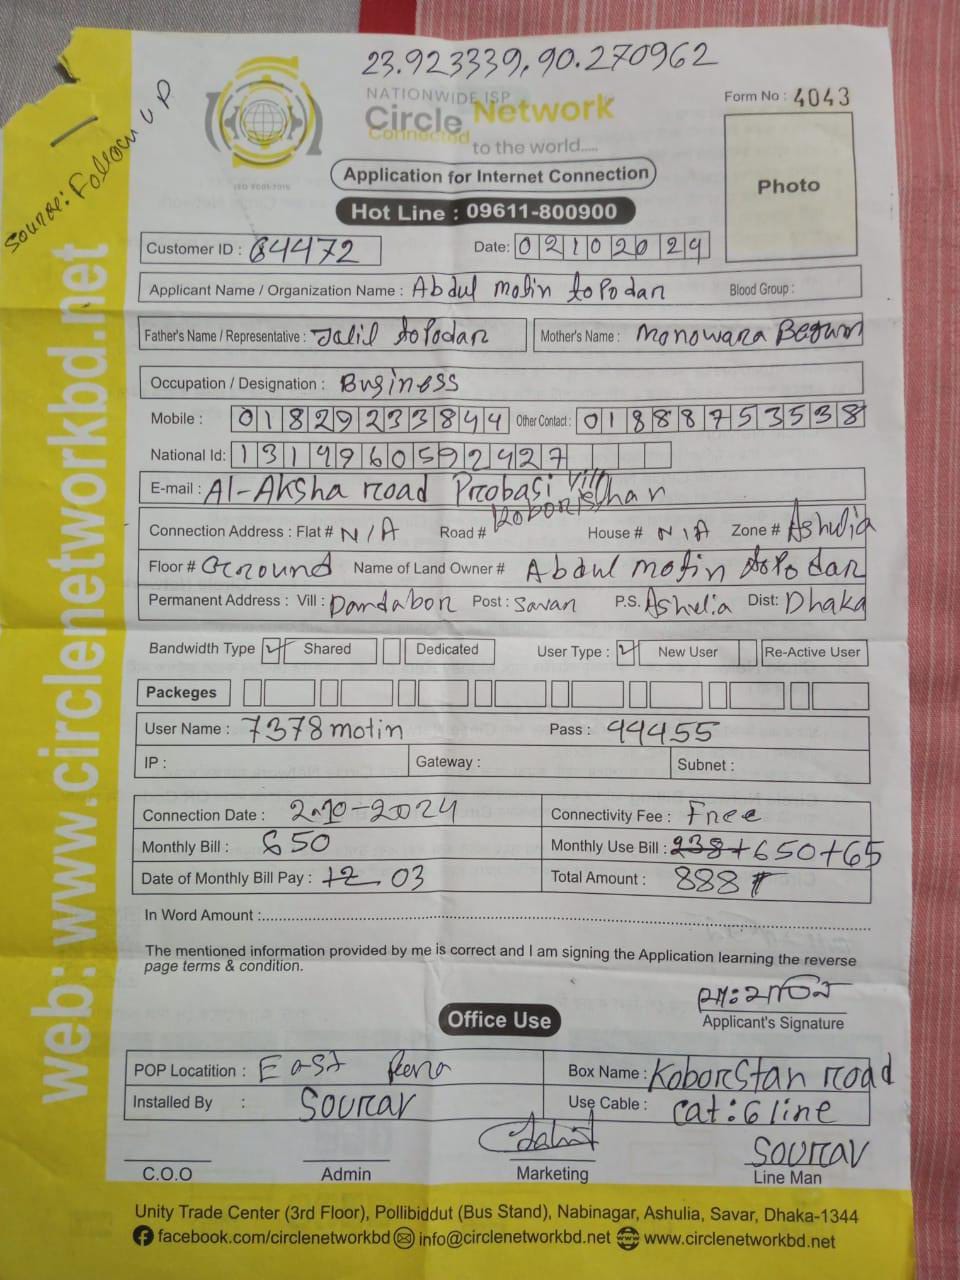 23.923339, 90.270962
NATIONWIDE ISP
Circle Network
Connected
to the world.....
ISO 9001:2015
Form No : 4043
Photo
Source: Follow UP
Application for Internet Connection
Hot Line : 09611-800900
Customer ID : 84472 Date: 02102024
Applicant Name / Organization Name : Abdul motin toPodar Blood Group :
Father's Name / Representative : Jalil toPodar Mother's Name : Monowara Begum
Occupation / Designation : Business
Mobile : 01829233844 Other Contact : 01888753538
National Id: 1314960592427
E-mail : Al-Aksha road Probasi Villa
Connection Address : Flat # N/A Road # Koboristhan House # N/A Zone # Ashulia
Floor # Ground Name of Land Owner # Abdul motin toPodar
Permanent Address : Vill : Dandabor Post : Savar P.S. Ashulia Dist: Dhaka
Bandwidth Type Shared Dedicated User Type : New User Re-Active User
Packeges
User Name : 7378motin Pass : 99455
IP : Gateway : Subnet :
Connection Date : 2-10-2024 Connectivity Fee : Free
Monthly Bill : 650 Monthly Use Bill : 238+650+65
Date of Monthly Bill Pay : 12 03 Total Amount : 888
In Word Amount :
The mentioned information provided by me is correct and I am signing the Application learning the reverse
page terms & condition.
Applicant's Signature
Office Use
POP Locatition : East Box Name : Koborstan road
Installed By : Sourav Use Cable : Cat:6 line
Sourav
C.O.O Admin Marketing Line Man
Unity Trade Center (3rd Floor), Pollibiddut (Bus Stand), Nabinagar, Ashulia, Savar, Dhaka-1344
facebook.com/circlenetworkbd info@circlenetworkbd.net www.circlenetworkbd.net
web: www.circlenetworkbd.net